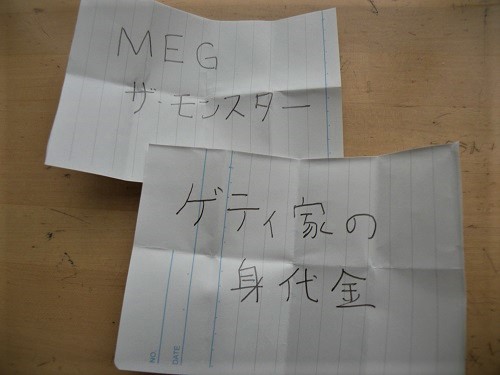 MEG
ザ・モンスター
ゲティ家の
身代金
NO.
DATE